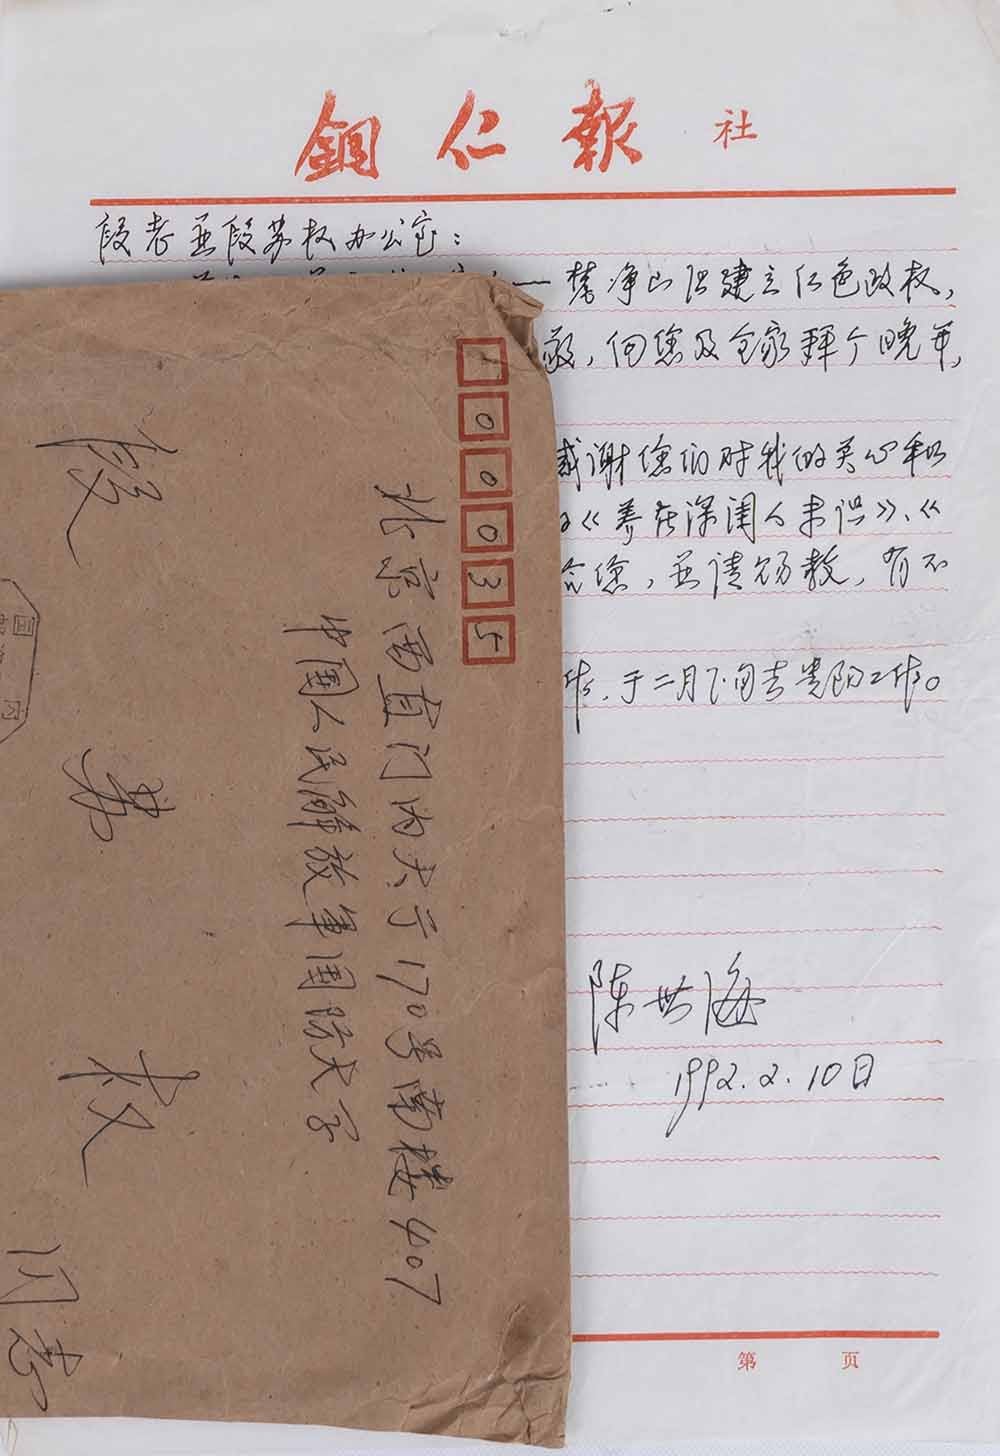 銅仁報社
段老并段苏权办公室：
一梵净山区建立红色政权，
敬，向您及全家拜个晚年，
感谢您们对我的关心和
《养在深闺人未识》、《
给您，并请赐教，有不
作，于二月下旬去贵阳工作。
陈世海
1992.2.10日
第 页
00035
北京西直门内大于170号南楼407
中国人民解放军国防大学
段苏权同志